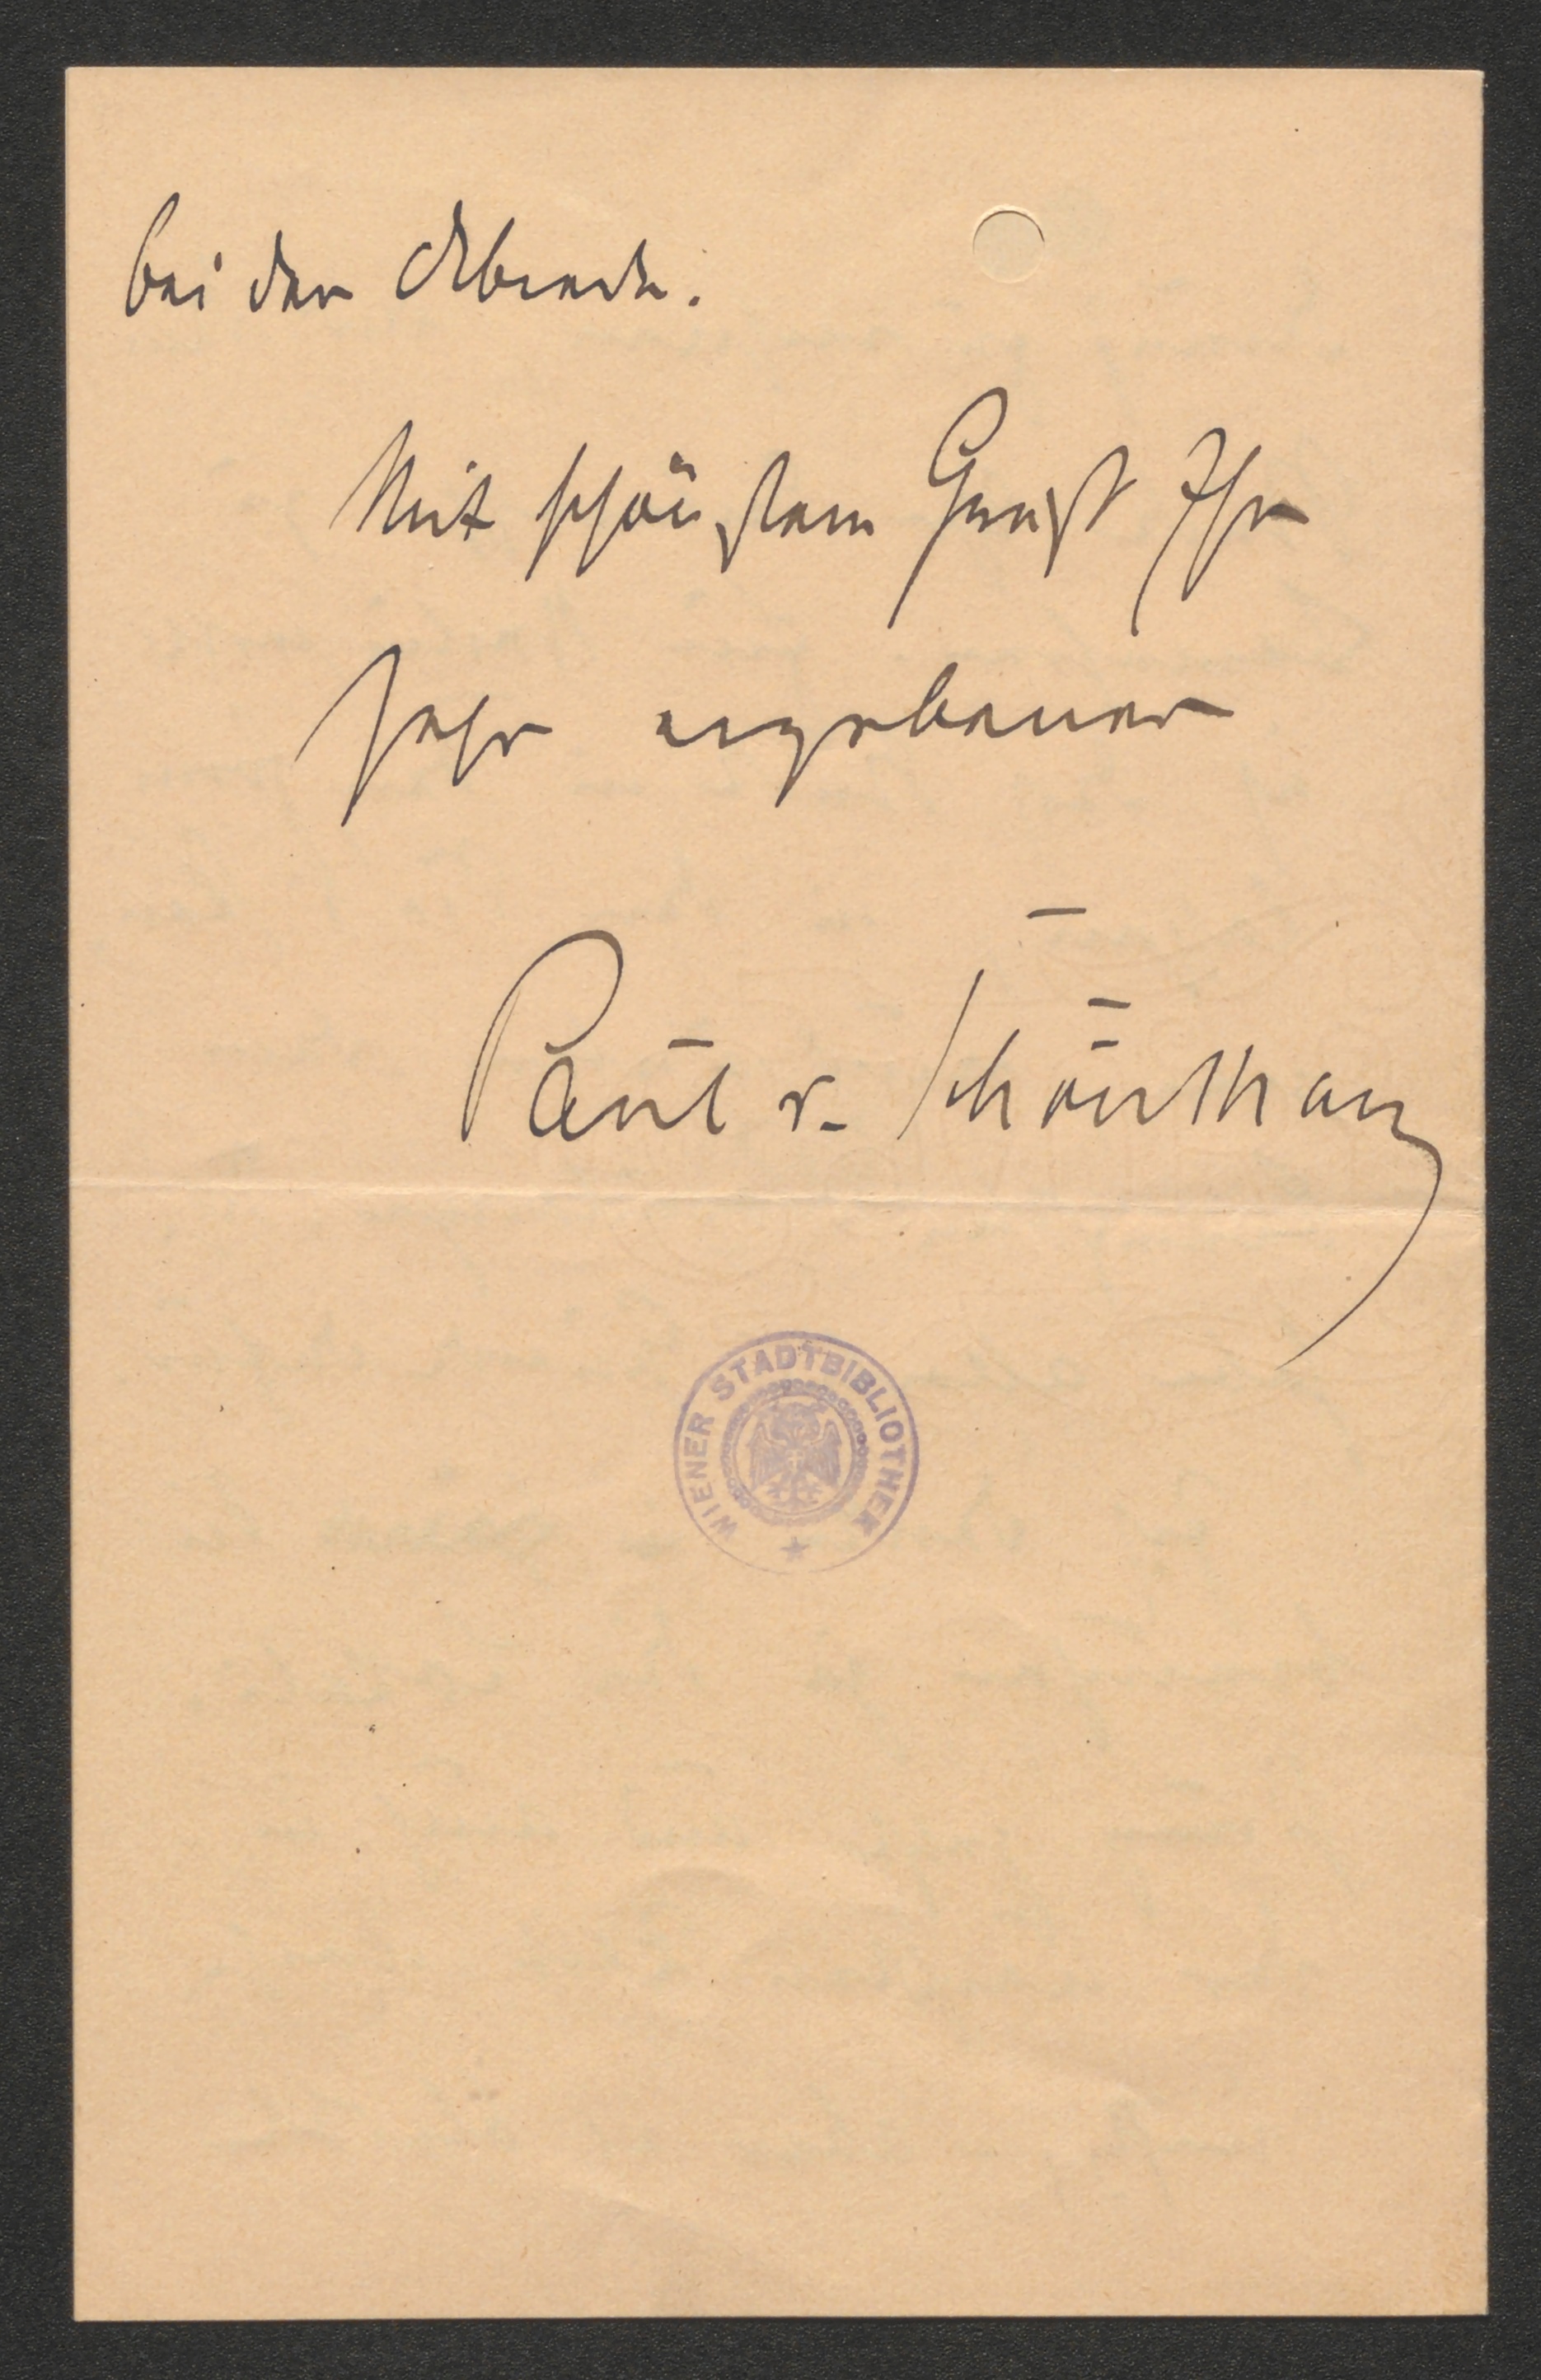 bei der Abrede.
Mit schönstem Gruß Ihr
sehr ergebener
Paul v. Schönthan
WIENER STADTBIBLIOTHEK